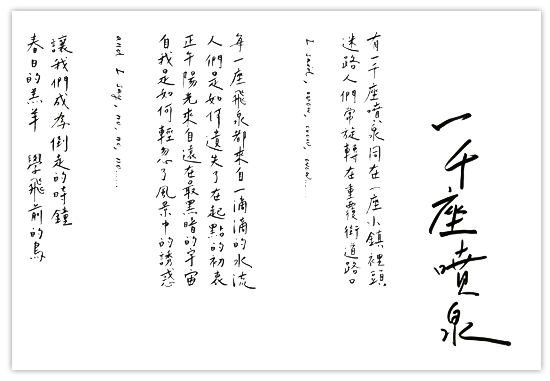 一千座噴泉
有一千座噴泉同在一座小鎮裡頭
迷路人們常旋轉在重覆街道路口
I said, wow, wow, wow......
每一座飛泉都來自一滴滴的水流
人們是如何遺失了在起點的初衷
正午陽光來自遠在最黑暗的宇宙
自我是如何輕忽了風景中的誘惑
and I say, no, no, no......
讓我們成為倒走的時鐘
春日的羔羊 學飛前的鳥